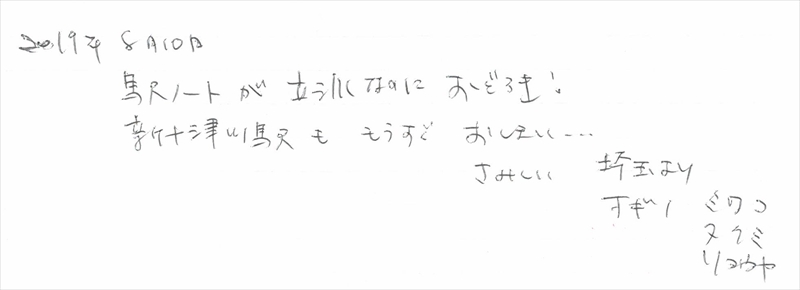 2019年 8月10日
駅ノートが 立派なのに おどろき!
新十津川駅も もうすぐ おしまい…
さみしい 埼玉より
すぎの ミワコ
タクミ
リョウヤ